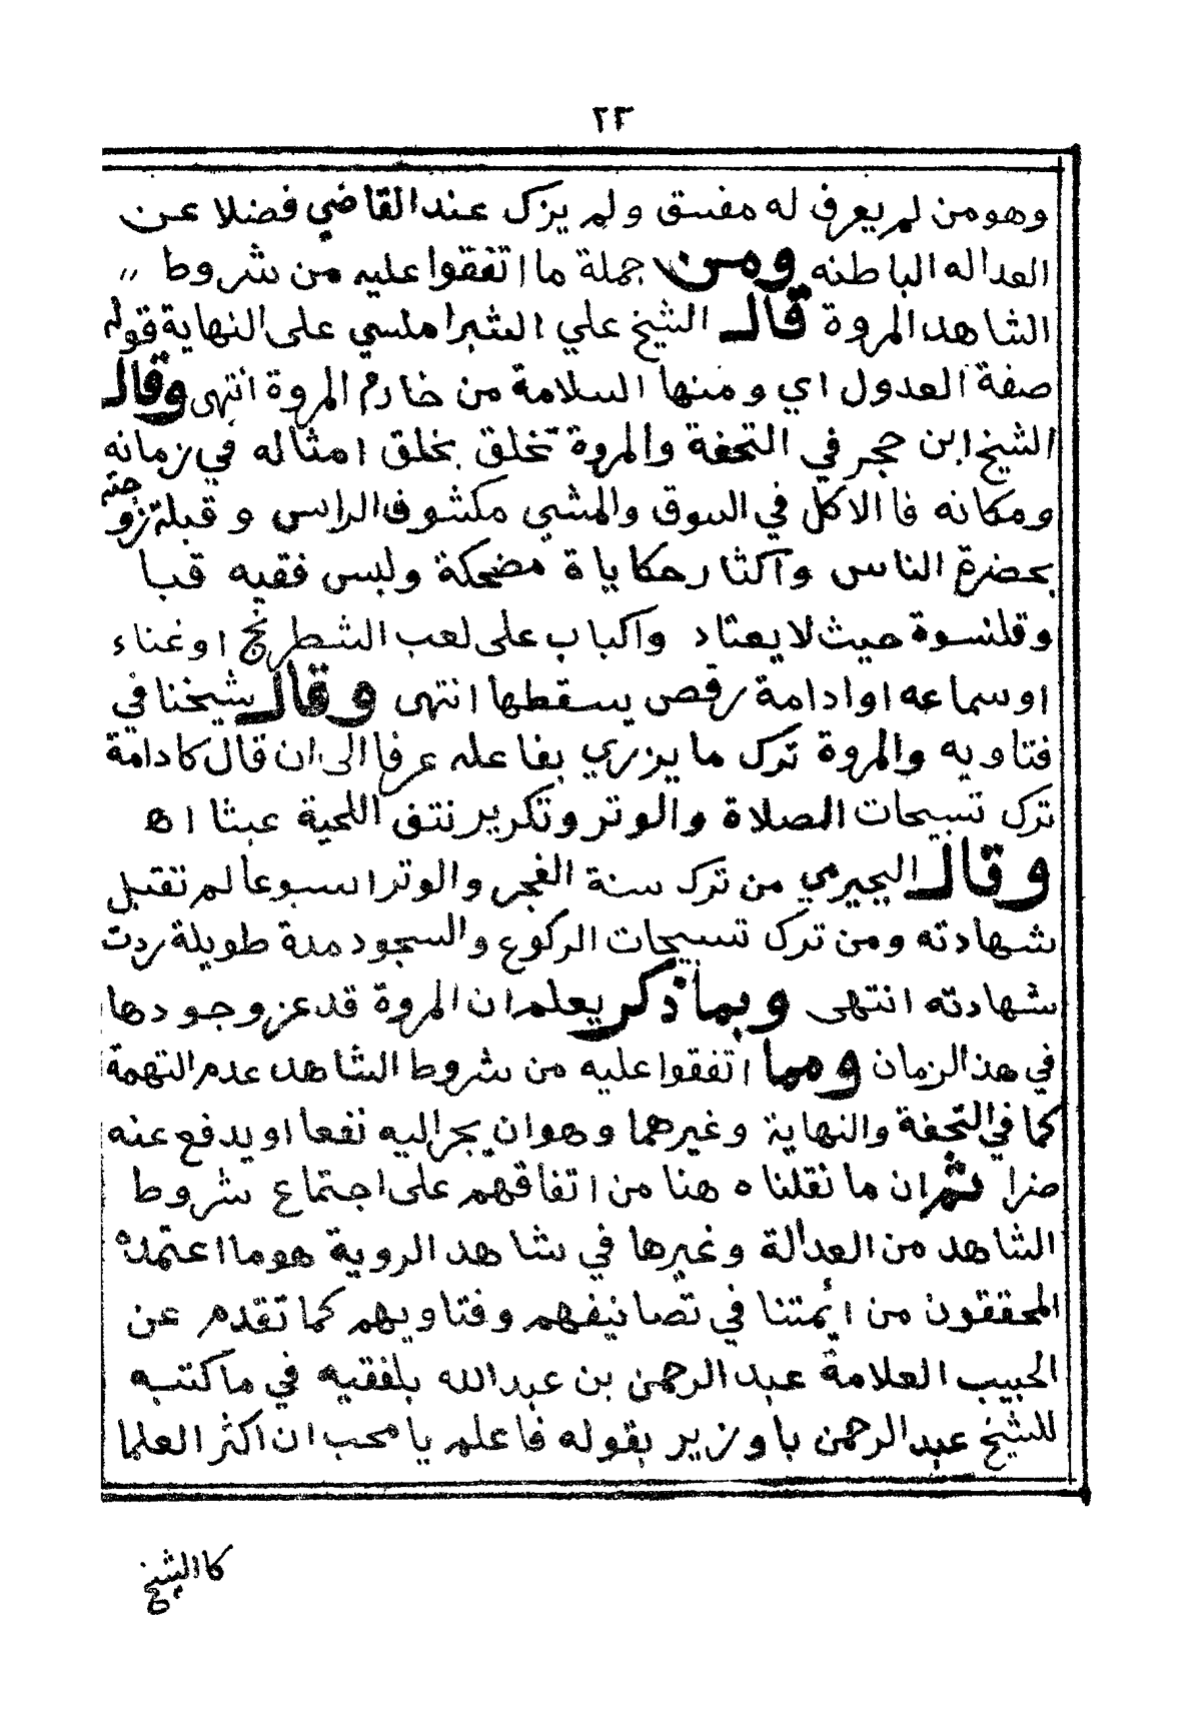 ٢٣
وهو من لم يعرف له مفسق ولم يزك عند القاضي فضلا عن
العداله الباطنه ومن جملة ما اتفقوا عليه من شروط ,,
الشاهد المروة قال الشيخ علي الشبراملسي على النهاية قوله
صفة العدول اي ومنها السلامة من خارم المروة انتهى وقال
الشيخ ابن حجر في التحفة والمروة تخلق بخلق امثاله في زمانه
ومكانه فا الاكل في السوق والمشي مكشوف الراس و قبلة زوجته
بحضرة الناس واكثار حكاياة مضحكة ولبس فقيه قبا
وقلنسوة حيث لا يعتاد واكباب على لعب الشطرنج اوغناء
اوسماعه اوادامة رقص يسقطها انتهى وقال شيخنا في
فتاويه والمروة ترك ما يزري بفاعله عرفا الى ان قال كادامة
ترك تسبيحات الصلاة والوتر وتكرير نتف اللحية عبثا اه
وقال البجيرمي من ترك سنة الفجر والوتر اسبوعا لم تقبل
شهادته ومن ترك تسبيحات الركوع والسجود مدة طويلة ردت
شهادته انتهى وبما ذكر يعلم ان المروة قد عز وجودها
في هذ الزمان ومما اتفقوا عليه من شروط الشاهد عدم التهمة
كما في التحفة والنهاية وغيرهما وهو ان يجر اليه نفعا او يدفع عنه
ضرا ثم ان ما نقلناه هنا من اتفاقهم على اجتماع شروط
الشاهد من العدالة وغيرها في شاهد الروية هو ما اعتمده
المحققون من ائمتنا في تصانيفهم وفتاويهم كما تقدم عن
الحبيب العلامة عبد الرحمن بن عبد الله بلفقيه في ما كتبه
للشيخ عبد الرحمن باوزير بقوله فاعلم يا محب ان اكثر العلما
كا الشيخ